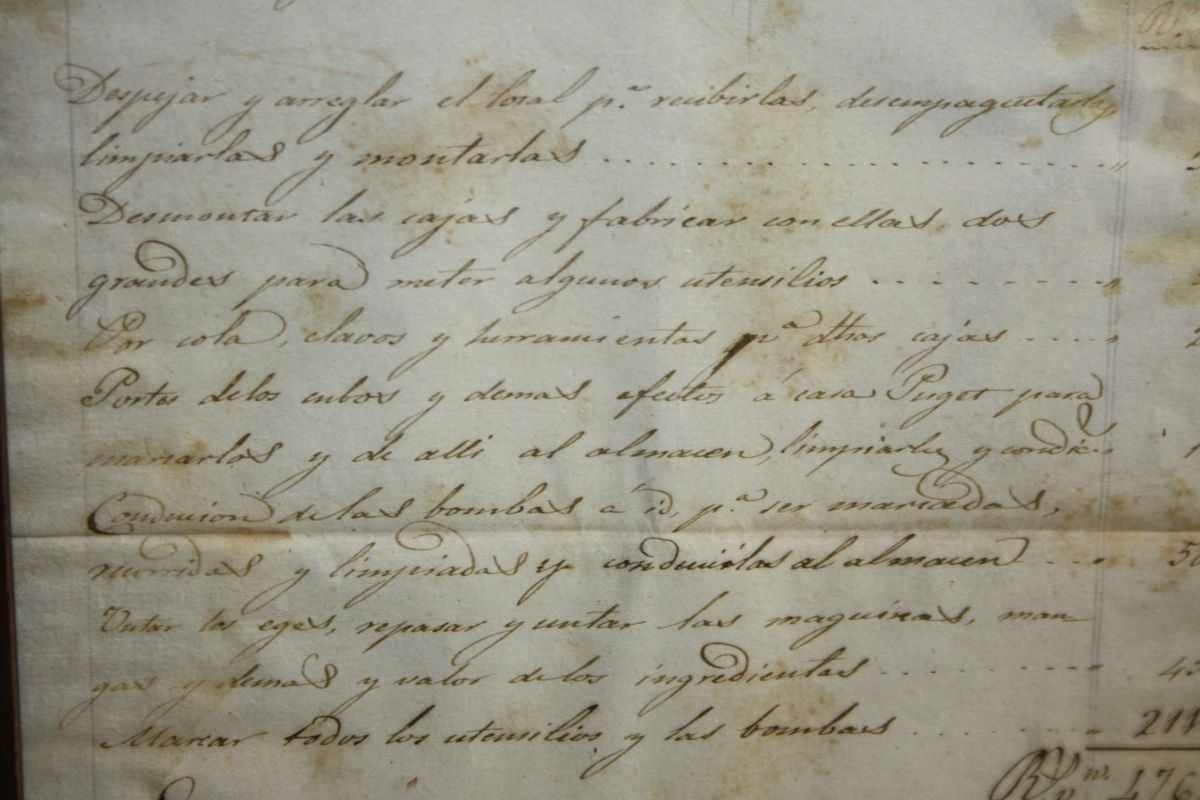 Despejar y arreglar el local p.ª recibirlas, desempaquetarlas,
limpiarlas y montarlas ........................ "
Desmontar las cajas y fabricar con ellas dos
grandes para meter algunos utensilios ......... "
Por cola, clavos y herramientas p.ª dhas cajas ..... " 2
Portes de los cubos y demas efectos á casa Puget para
marcarlos y de alli al almacen, limpiarlos y condic.s " 1
Conducion de las bombas á id. p.ª ser marcadas,
recorridas y limpiadas y conducirlas al almacen .... " 50
Untar los eges, repasar y untar las maquinas, man-
gas y demas y valor de los ingredientes ........... " 4
Marcar todos los utensilios y las bombas ........ " 211
R.s v.n 476